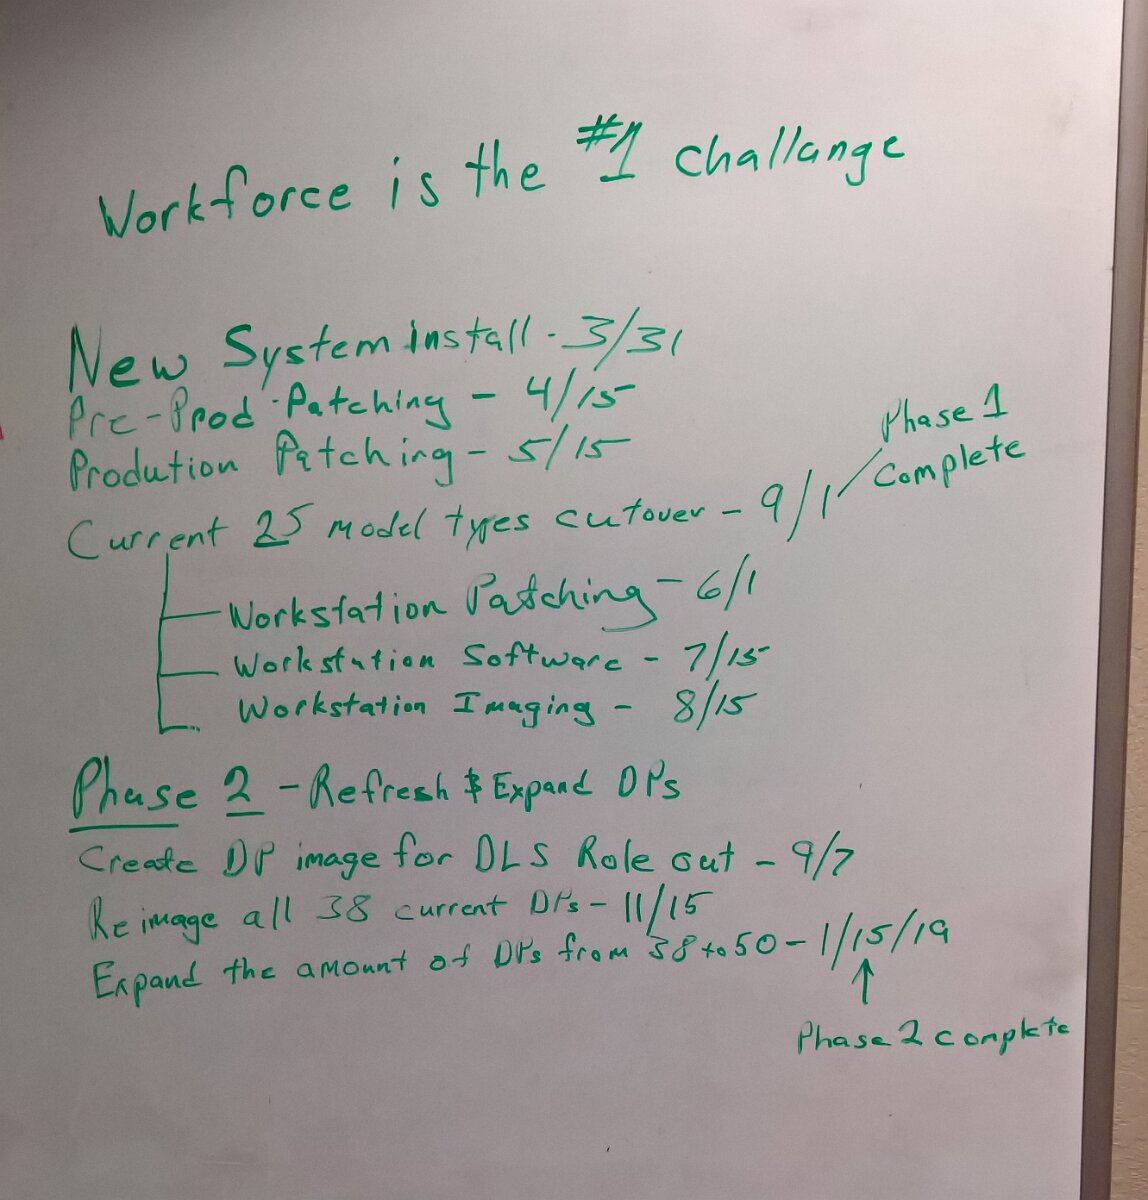 Workforce is the #1 challange
New System install - 3/31
Pre-Prod Patching - 4/15
Prodution Patching - 5/15
Current 25 model types cutover - 9/1
Phase 1
Complete
Workstation Patching - 6/1
Workstation Software - 7/15
Workstation Imaging - 8/15
Phase 2 - Refresh & Expand DPs
Create DP image for DLS Role out - 9/7
Reimage all 38 current DPs - 11/15
Expand the amount of DPs from 38 to 50 - 1/15/19
Phase 2 complete